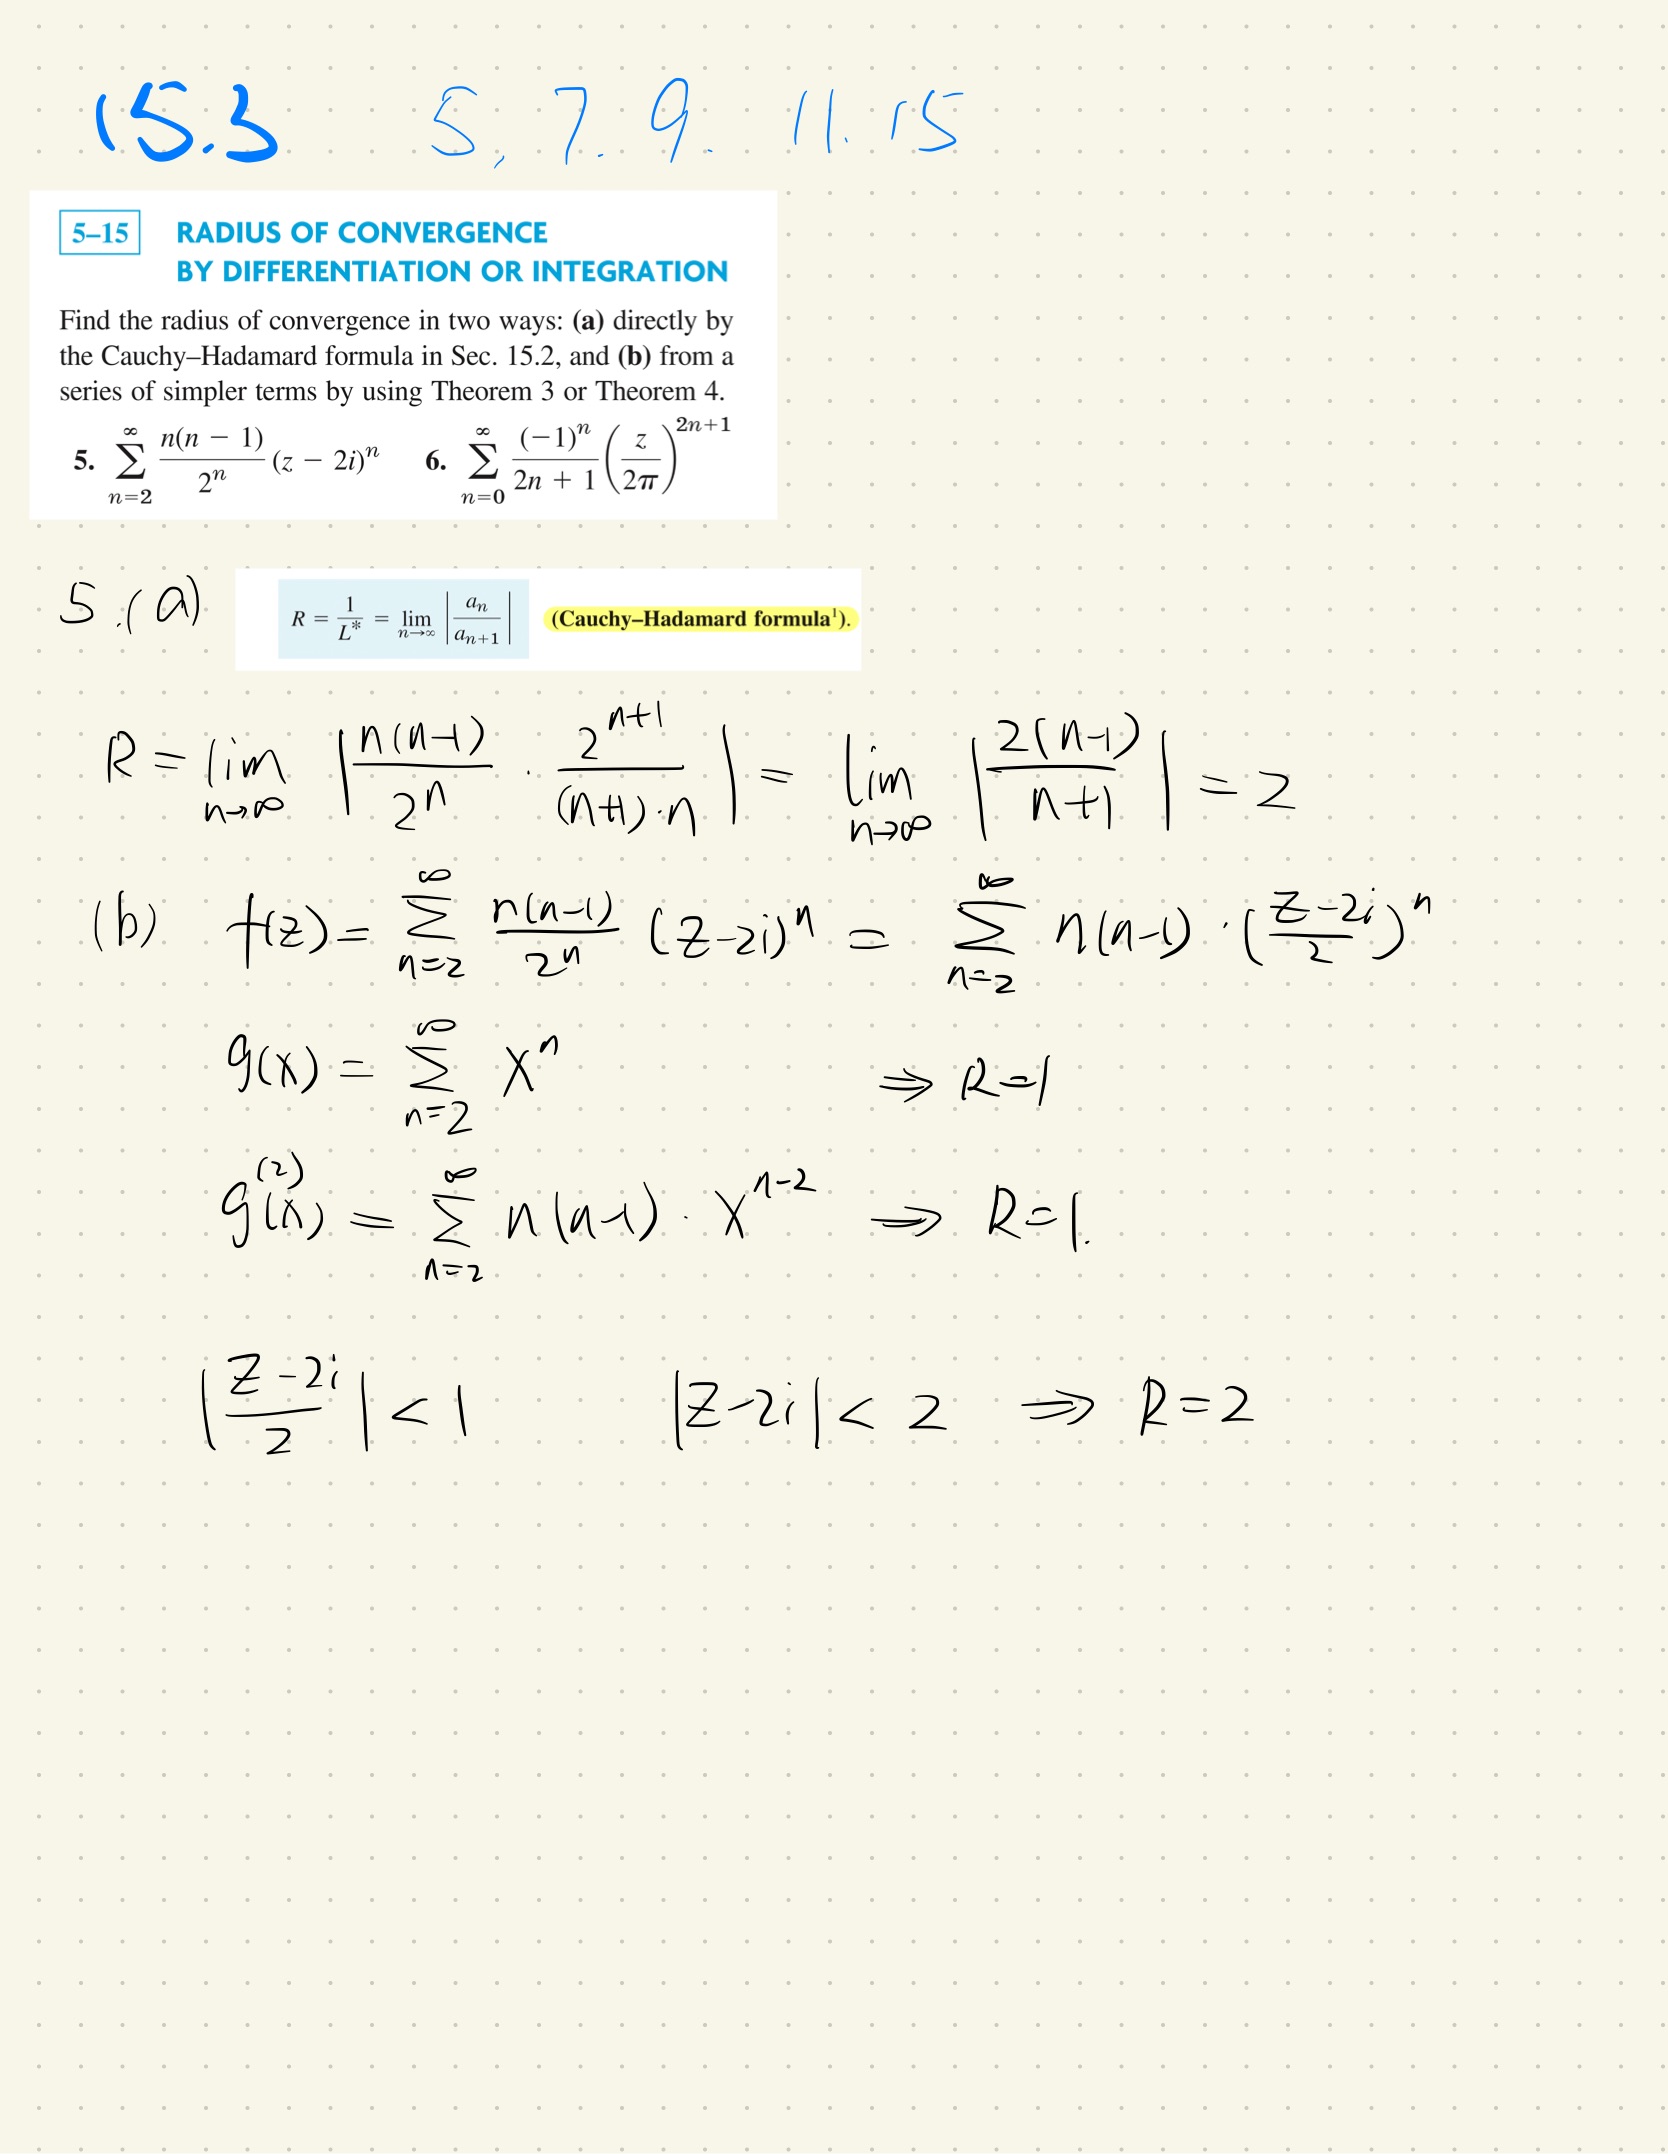 15.3 5, 7. 9. 11. 15
5–15 RADIUS OF CONVERGENCE
BY DIFFERENTIATION OR INTEGRATION
Find the radius of convergence in two ways: (a) directly by
the Cauchy–Hadamard formula in Sec. 15.2, and (b) from a
series of simpler terms by using Theorem 3 or Theorem 4.
5. $\sum_{n=2}^{\infty} \frac{n(n-1)}{2^n} (z-2i)^n$ 6. $\sum_{n=0}^{\infty} \frac{(-1)^n}{2n+1} \left(\frac{z}{2\pi}\right)^{2n+1}$
5.(a) $R = \frac{1}{L^*} = \lim_{n\to\infty} \left|\frac{a_n}{a_{n+1}}\right|$ (Cauchy–Hadamard formula¹).
$R = \lim_{n\to\infty} \left|\frac{n(n-1)}{2^n} \cdot \frac{2^{n+1}}{(n+1) \cdot n}\right| = \lim_{n\to\infty} \left|\frac{2(n-1)}{n+1}\right| = 2$
(b) $f(z) = \sum_{n=2}^{\infty} \frac{n(n-1)}{2^n} (z-2i)^n = \sum_{n=2}^{\infty} n(n-1) \cdot \left(\frac{z-2i}{2}\right)^n$
$g(x) = \sum_{n=2}^{\infty} x^n \Rightarrow R=1$
$g^{(2)}(x) = \sum_{n=2}^{\infty} n(n-1) \cdot x^{n-2} \Rightarrow R=1.$
$\left|\frac{z-2i}{2}\right| < 1 \quad |z-2i| < 2 \Rightarrow R=2$